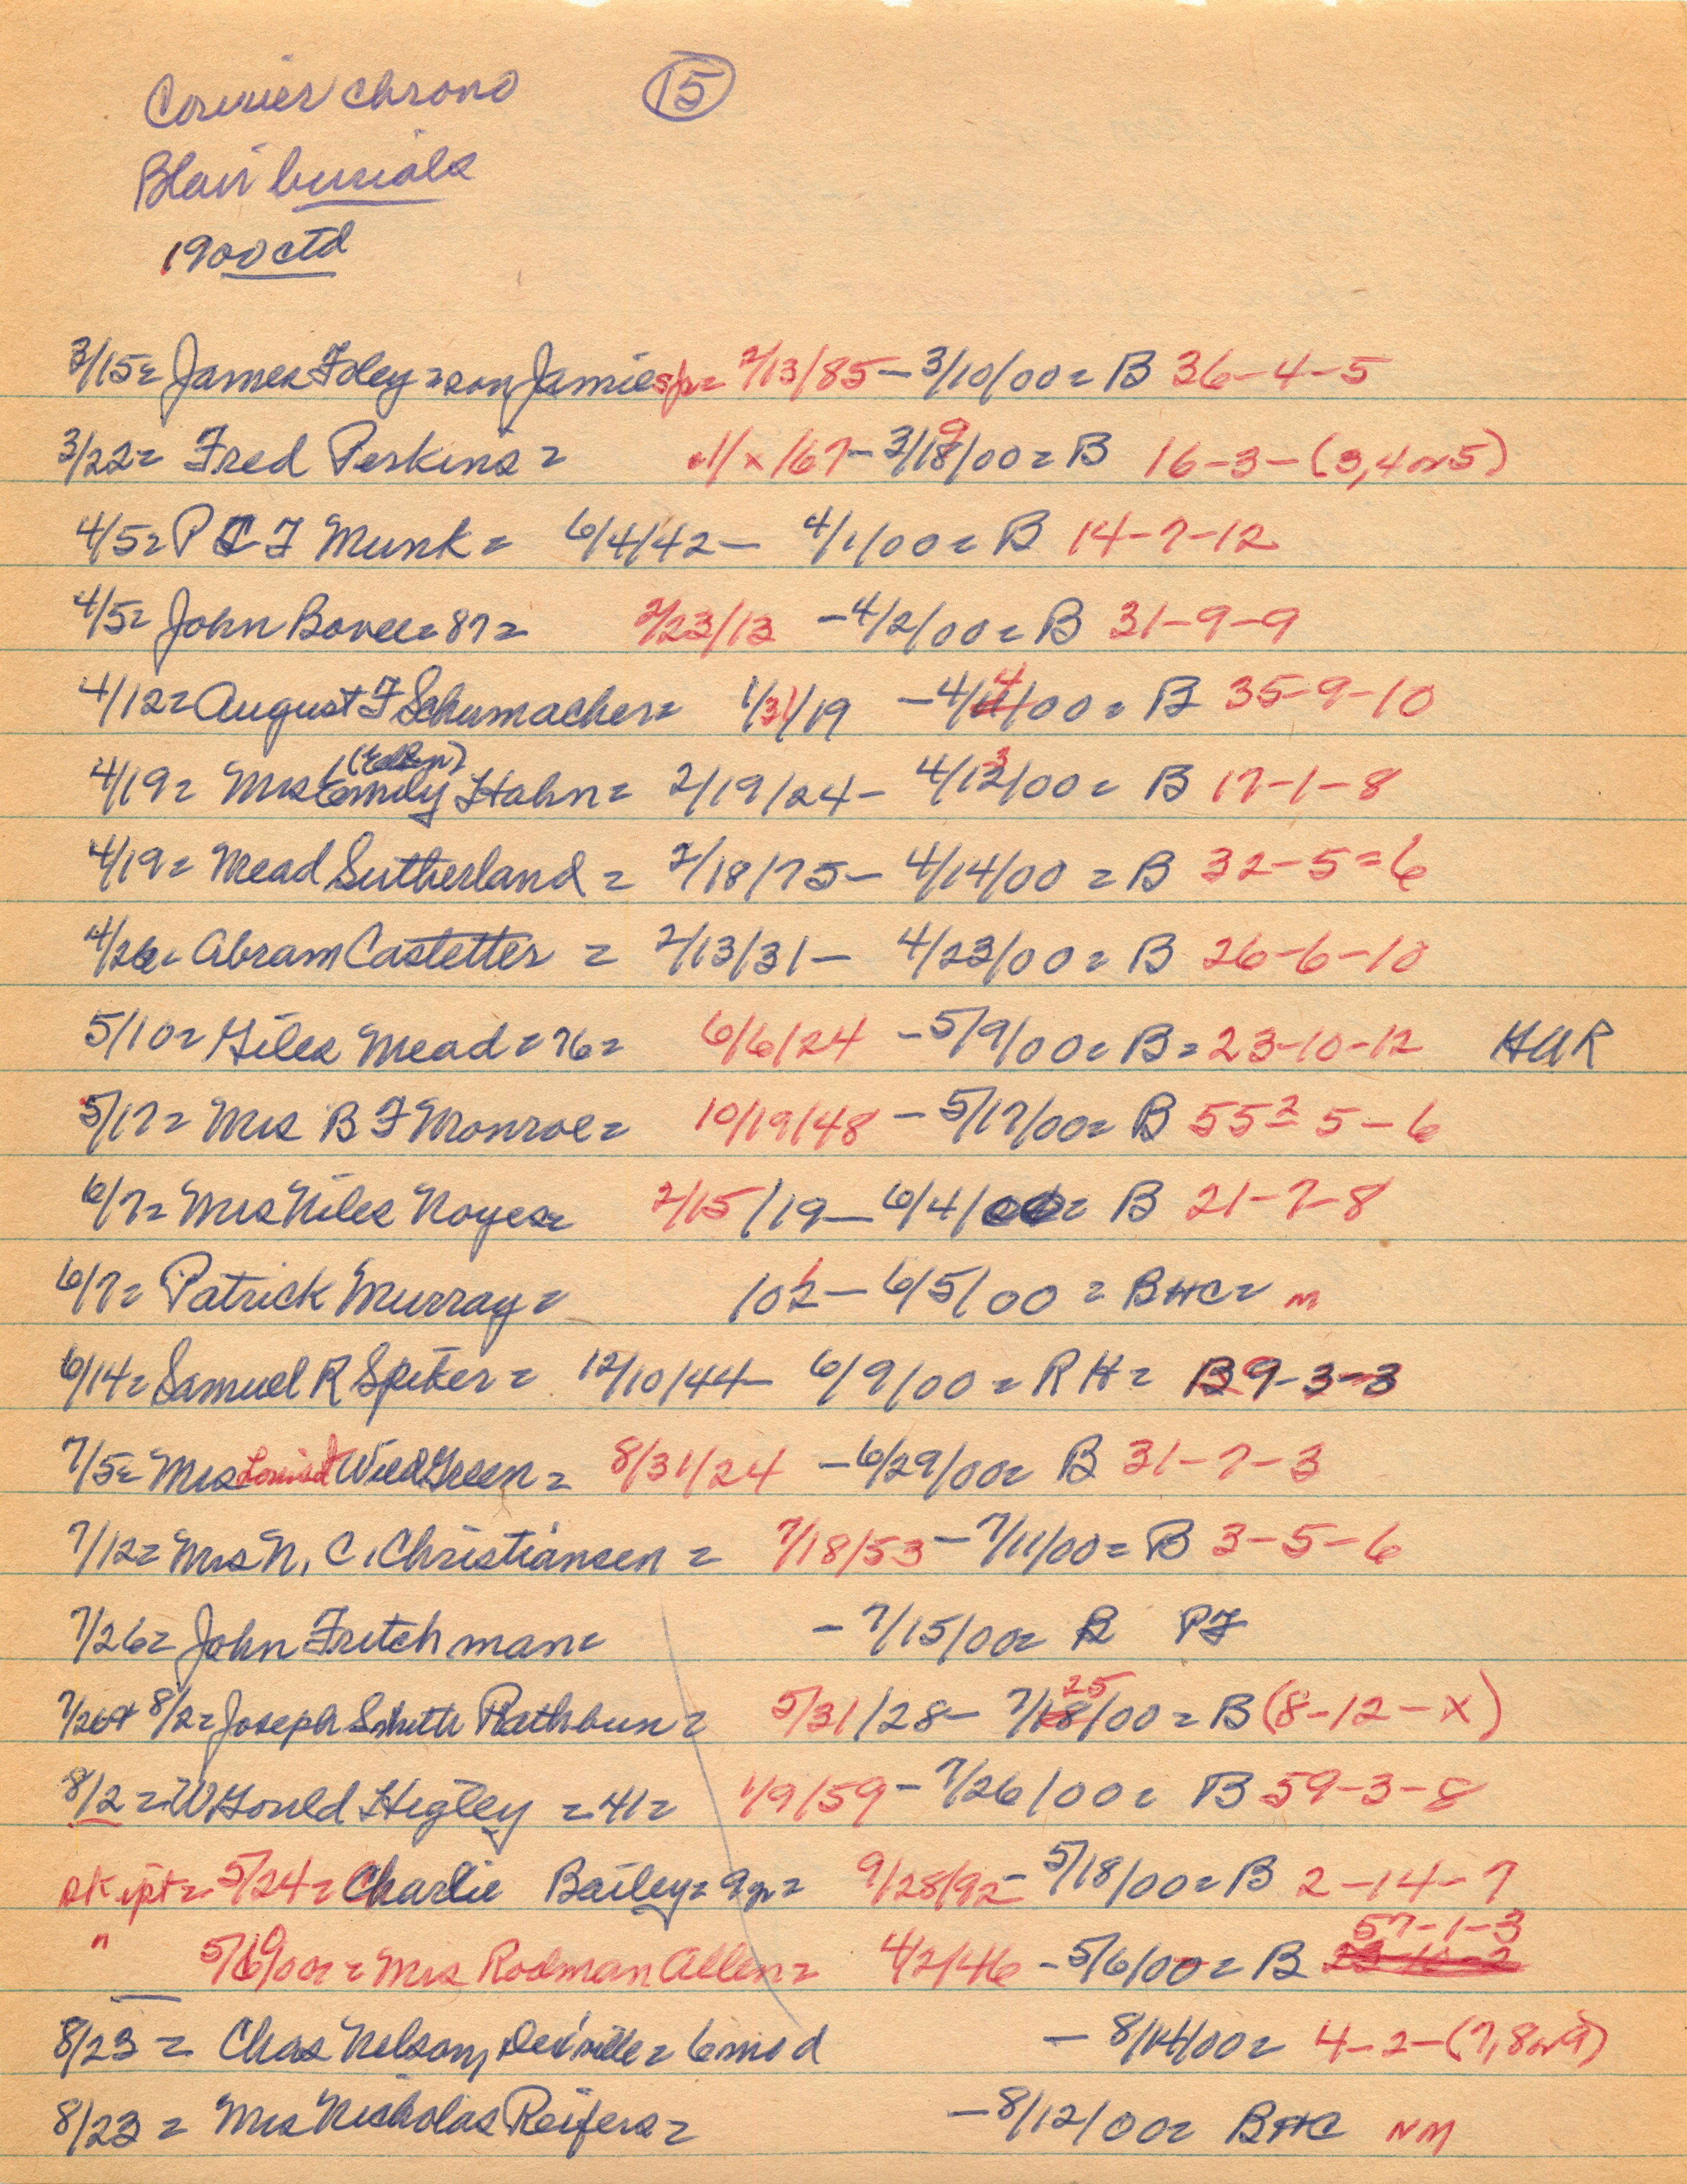 Courier chrono 15
Blair burials
1900 ctd
3/15= James Foley = son Jamie 2/13/85 - 3/10/00 = B 36-4-5
3/22= Fred Perkins = /x/67 - 3/18/00 = B 16-3-(3,4 or 5)
9
4/5= P C F Munk = 6/4/42 - 4/1/00 = B 14-7-12
4/5= John Bovee = 87 = 2/23/13 - 4/2/00 = B 31-9-9
4/12= August F Schumacher = 1/31/19 - 4/4/00 = B 35-9-10
(Ellen)
4/19= Mrs Emily Hahn = 2/19/24 - 4/13/00 = B 17-1-8
4/19= Mead Sutherland = 2/18/75 - 4/14/00 = B 32-5=6
4/26= Abram Castetter = 2/13/31 - 4/23/00 = B 26-6-10
5/10= Giles Mead = 76 = 6/6/24 - 5/9/00 = B = 23-10-12 HAR
5/17= Mrs B F Monroe = 10/19/48 - 5/17/00 = B 55²= 5-6
6/7= Mrs Niles Noyes = 2/15/19 - 6/4/00 = B 21-7-8
6/7= Patrick Murray = 102 - 6/5/00 = BHC = m
6/14= Samuel R Spiker = 12/10/44 - 6/9/00 = R H = B 9-3-3
7/5= Mrs Green = 8/31/24 - 6/29/00 = B 31-7-3
7/12= Mrs N. C. Christiansen = 7/18/53 - 7/11/00 = B 3-5-6
7/26= John Fritchman = - 7/15/00 = R PF
25
7/26+ 8/2= Joseph Smith Rathbun = 5/31/28 - 7/18/00 = B (8-12-X)
8/2= W Gould Higley = 41 = 1/9/59 - 7/26/00 = B 59-3-8
5/24= Charlie Bailey = 9 = 9/28/92 - 5/18/00 = B 2-14-7
57-1-3
" Mrs Rodman Allen = 4/2/46 - 5/6/00 = B 23-10-2
8/23 = Chas Nelson, = 6 mo d - 8/14/00 = 4-2-(7,8 or 9)
8/23 = Mrs Nicholas Reifers = - 8/12/00 = BHC NM